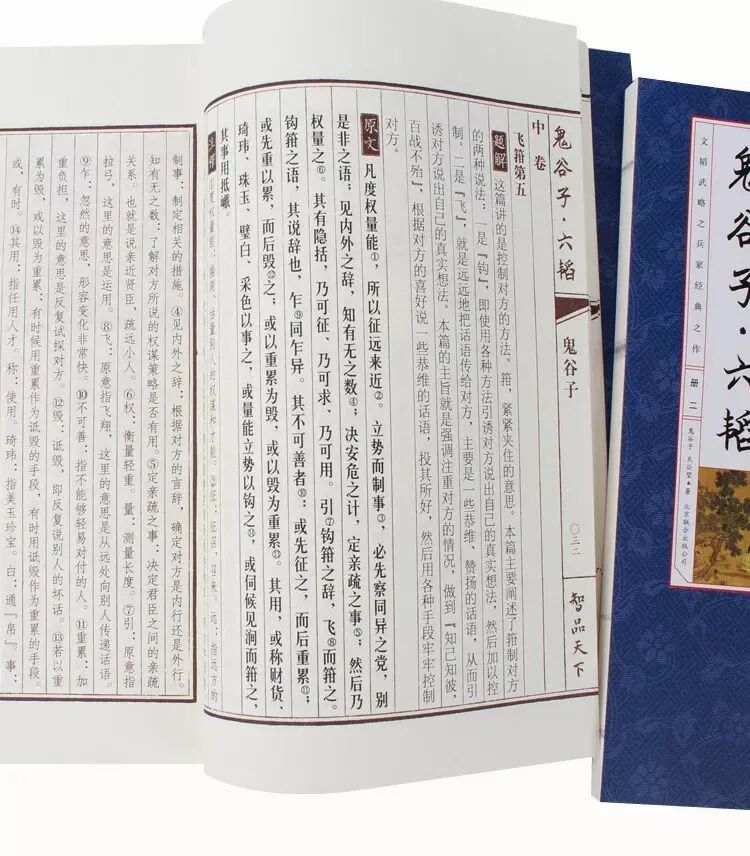 鬼谷子·六韬
文韬武略之兵家经典之作
册二
鬼谷子 太公望▲著 北京联合出版公司
鬼谷子·六韬 鬼谷子 〇三二 智品天下
中卷
飞箝第五
题解 这篇讲的是控制对方的方法。箝,紧紧夹住的意思。本篇主要阐述了箝制对方
的两种说法:一是『钩』,即使用各种方法引诱对方说出自己的真实想法,然后加以控
制。二是『飞』,就是远远地把话语传给对方,主要是一些恭维、赞扬的话语,从而引
诱对方说出自己的真实想法。本篇的主旨就是强调注重对方的情况,做到『知己知彼,
百战不殆』,根据对方的喜好说一些恭维的话语,投其所好,然后用各种手段牢牢控制
对方。
原文 凡度权量能①,所以征远来近②。立势而制事③,必先察同异之党,别
是非之语;见内外之辞,知有无之数④;决安危之计,定亲疏之事⑤;然后乃
权量之⑥。其有隐括,乃可征、乃可求、乃可用。引⑦钩箝之辞,飞⑧而箝之。
钩箝之语,其说辞也,乍⑨同乍异。其不可善者⑩:或先征之,而后重累⑪;
或先重以累,而后毁⑫之;或以重累为毁,或以毁为重累⑬。其用,或称财货、
琦玮、珠玉、璧白、采色以事之,或量能立势以钩之⑭,或伺候见涧而箝之,
其事用抵巇。
注释 ①度权量能:揣测、估量别人的权谋和才能。②征:征召,召来。远:指远方的
制事:制定相关的措施。④见内外之辞:根据对方的言辞,确定对方是内行还是外行。
知有无之数:了解对方所说的权谋策略是否有用。⑤定亲疏之事:决定君臣之间的亲疏
关系。也就是说亲近贤臣,疏远小人。⑥权:衡量轻重。量:测量长度。⑦引:原意指
拉弓,这里的意思是运用。⑧飞:原意指飞翔,这里的意思是从远处向别人传递话语。
⑨乍:忽然的意思,形容变化非常快。⑩不可善:指不能够轻易对付的人。⑪重累:加
重负担,这里的意思是反复试探对方。⑫毁:诋毁,即反复说别人的坏话。⑬若以重
累为毁,或以毁为重累:有时候用重累作为诋毁的手段,有时用诋毁作为重累的手段。
或,有时。⑭其用:指任用人才。称:使用。琦玮:指美玉珍宝。白:通『帛』。事: